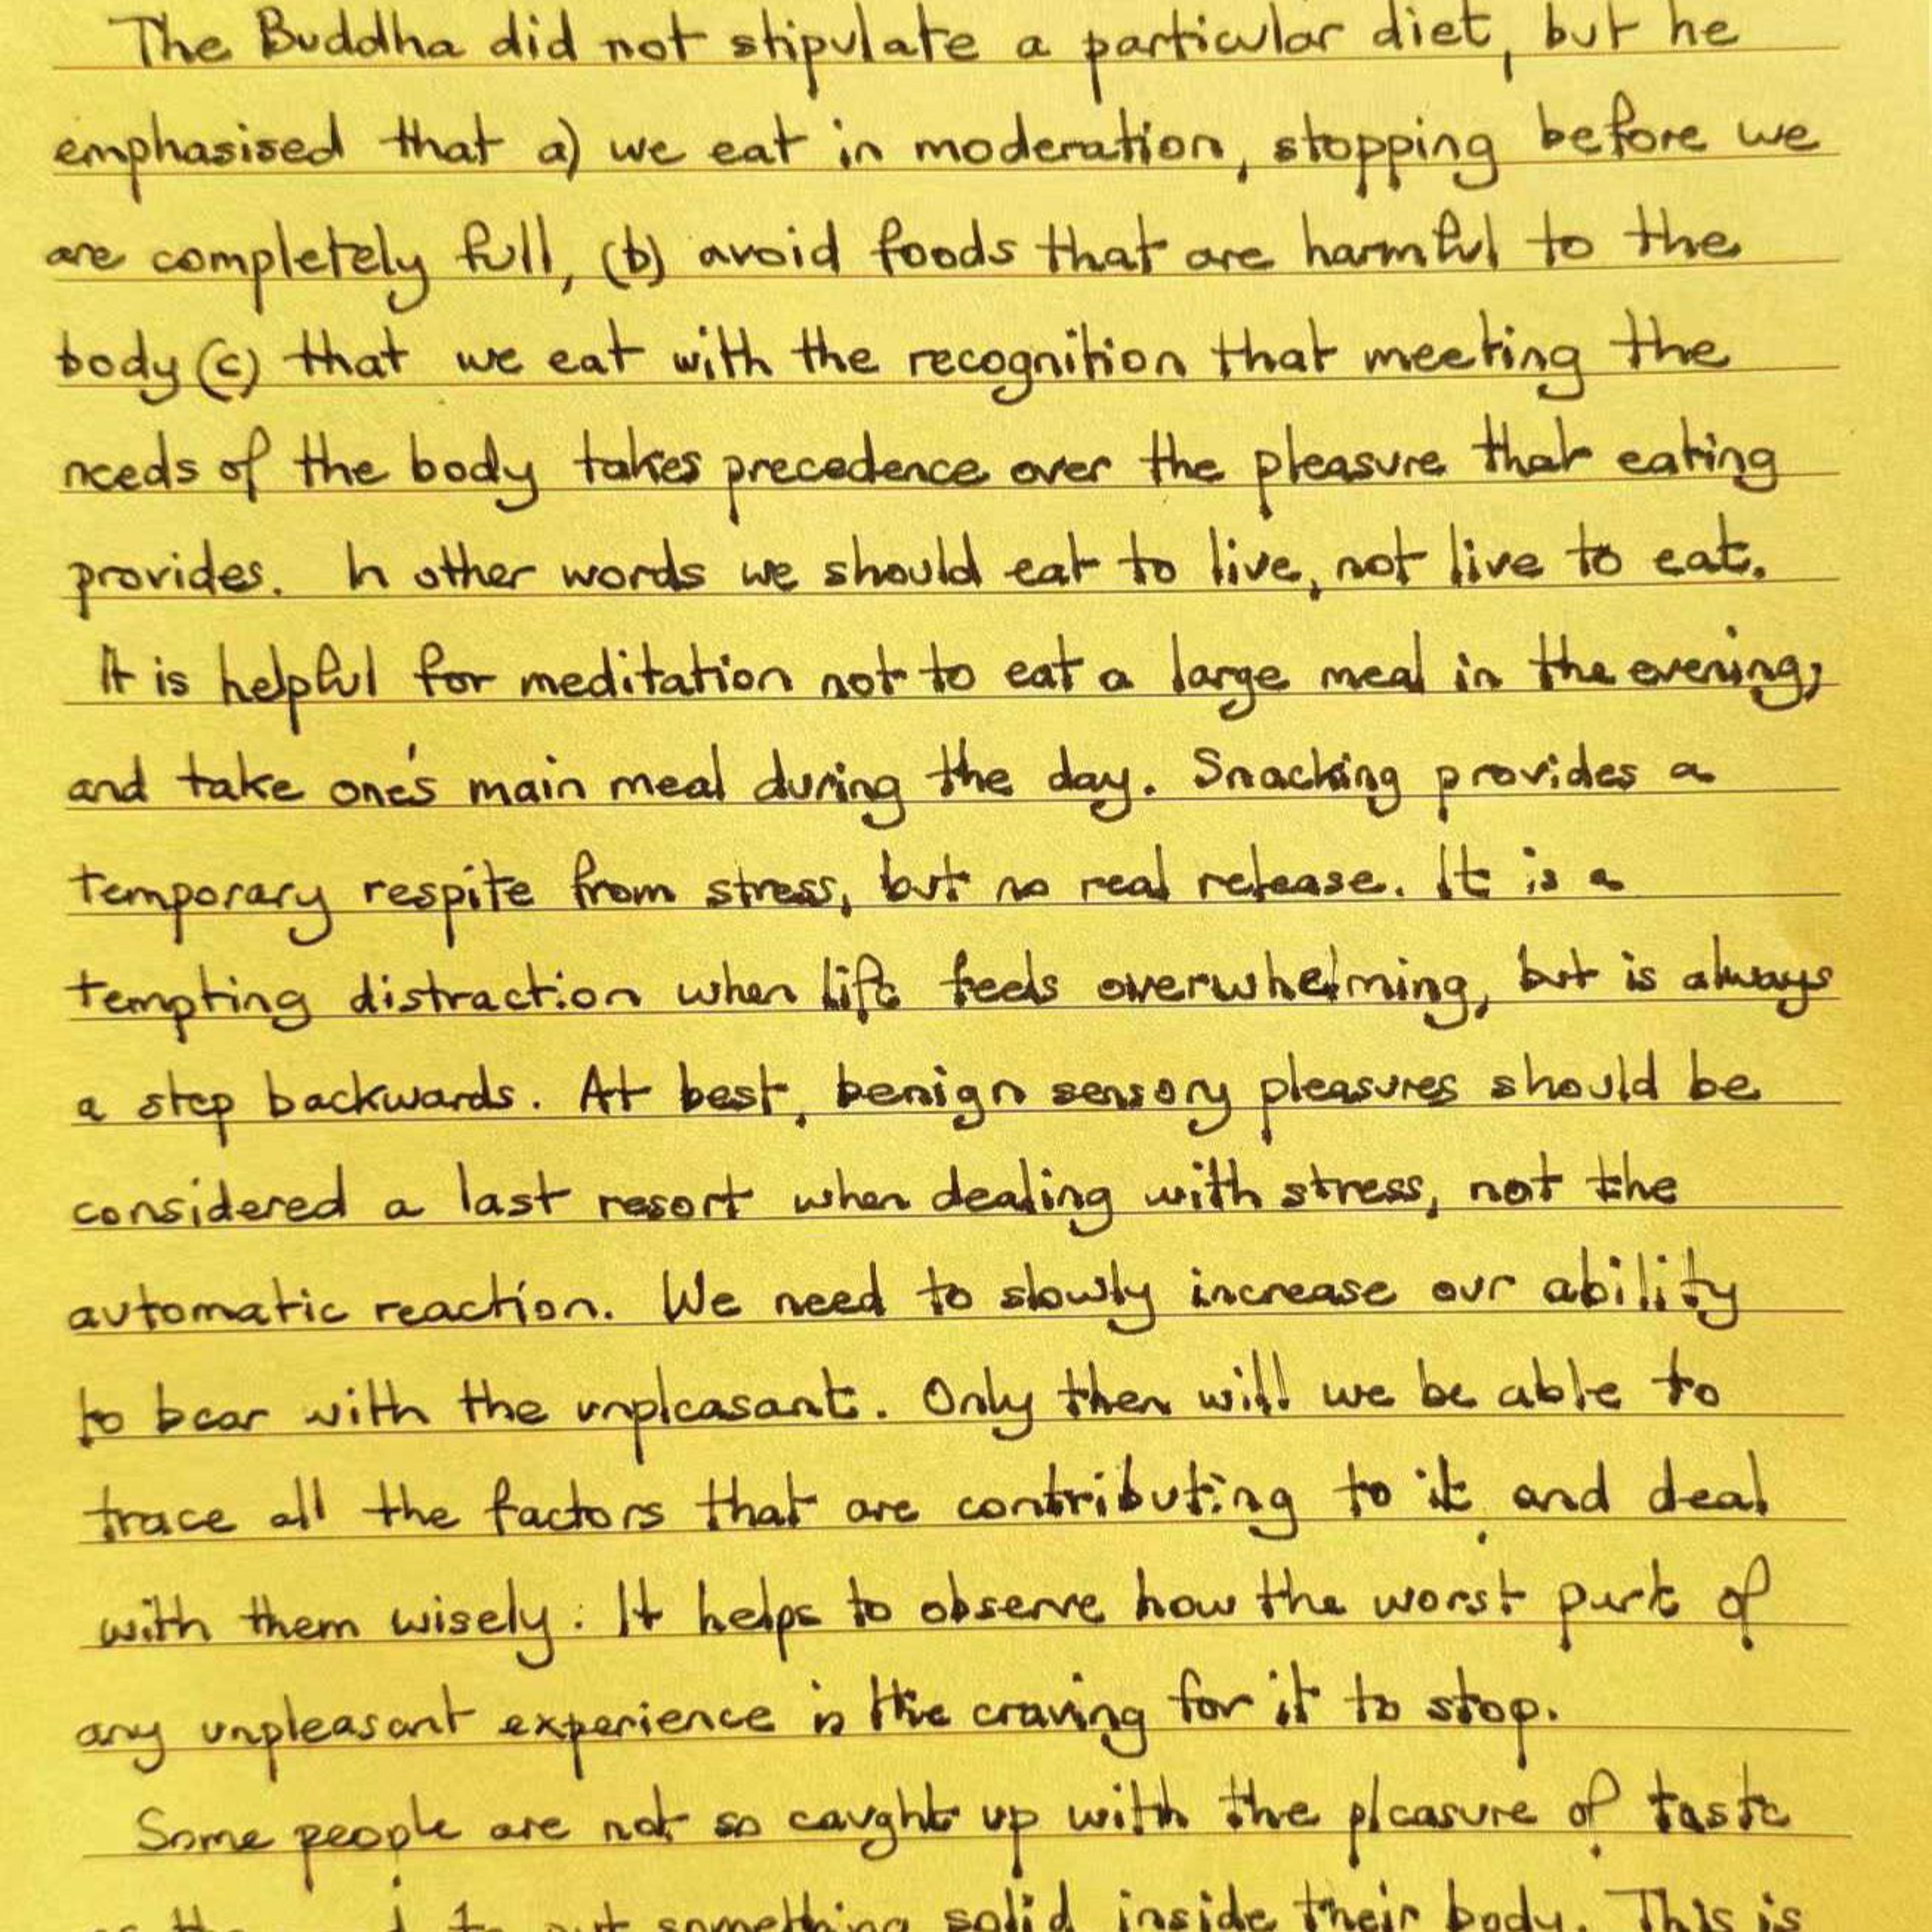 The Buddha did not stipulate a particular diet, but he
emphasised that a) we eat in moderation, stopping before we
are completely full, (b) avoid foods that are harmful to the
body (c) that we eat with the recognition that meeting the
needs of the body takes precedence over the pleasure that eating
provides. In other words we should eat to live, not live to eat.
It is helpful for meditation not to eat a large meal in the evening,
and take one's main meal during the day. Snacking provides a
temporary respite from stress, but no real release. It is a
tempting distraction when life feels overwhelming, but is always
a step backwards. At best, benign sensory pleasures should be
considered a last resort when dealing with stress, not the
automatic reaction. We need to slowly increase our ability
to bear with the unpleasant. Only then will we be able to
trace all the factors that are contributing to it, and deal
with them wisely. It helps to observe how the worst part of
any unpleasant experience is the craving for it to stop.
Some people are not so caught up with the pleasure of taste
something solid inside their body. This is